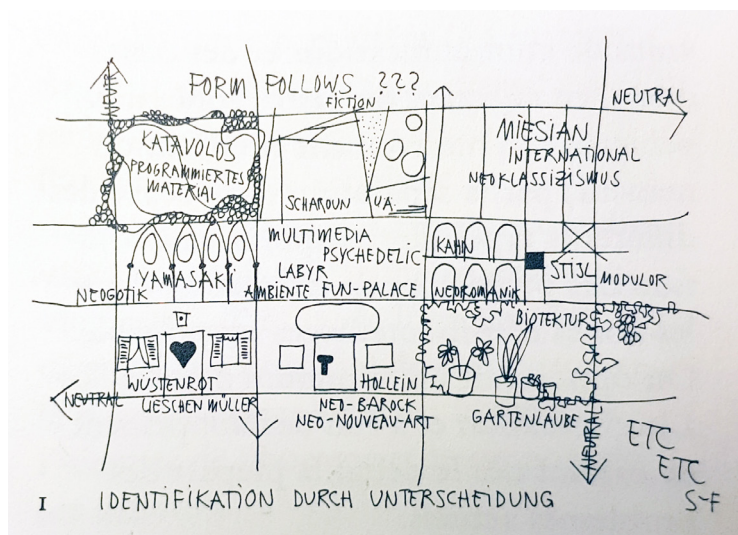 FORM FOLLOWS ???
FICTION
NEUTR
NEUTRAL
KATAVOLOS
PROGRAMMIERTES
MATERIAL
SCHAROUN U.A.
MIESIAN
INTERNATIONAL
NEOKLASSIZISMUS
YAMASAKI
NEOGOTIK
MULTIMEDIA
PSYCHEDELIC
LABYR
AMBIENTE FUN-PALACE
KAHN
NEOROMANIK
STIJL
MODULOR
WÜSTENROT
UESCHEN MÜLLER
NEUTRAL
HOLLEIN
NEO-BAROCK
NEO-NOUVEAU-ART
BIOTEKTUR
GARTENLAUBE
NEUTRAL
ETC
ETC
S-F
I IDENTIFIKATION DURCH UNTERSCHEIDUNG